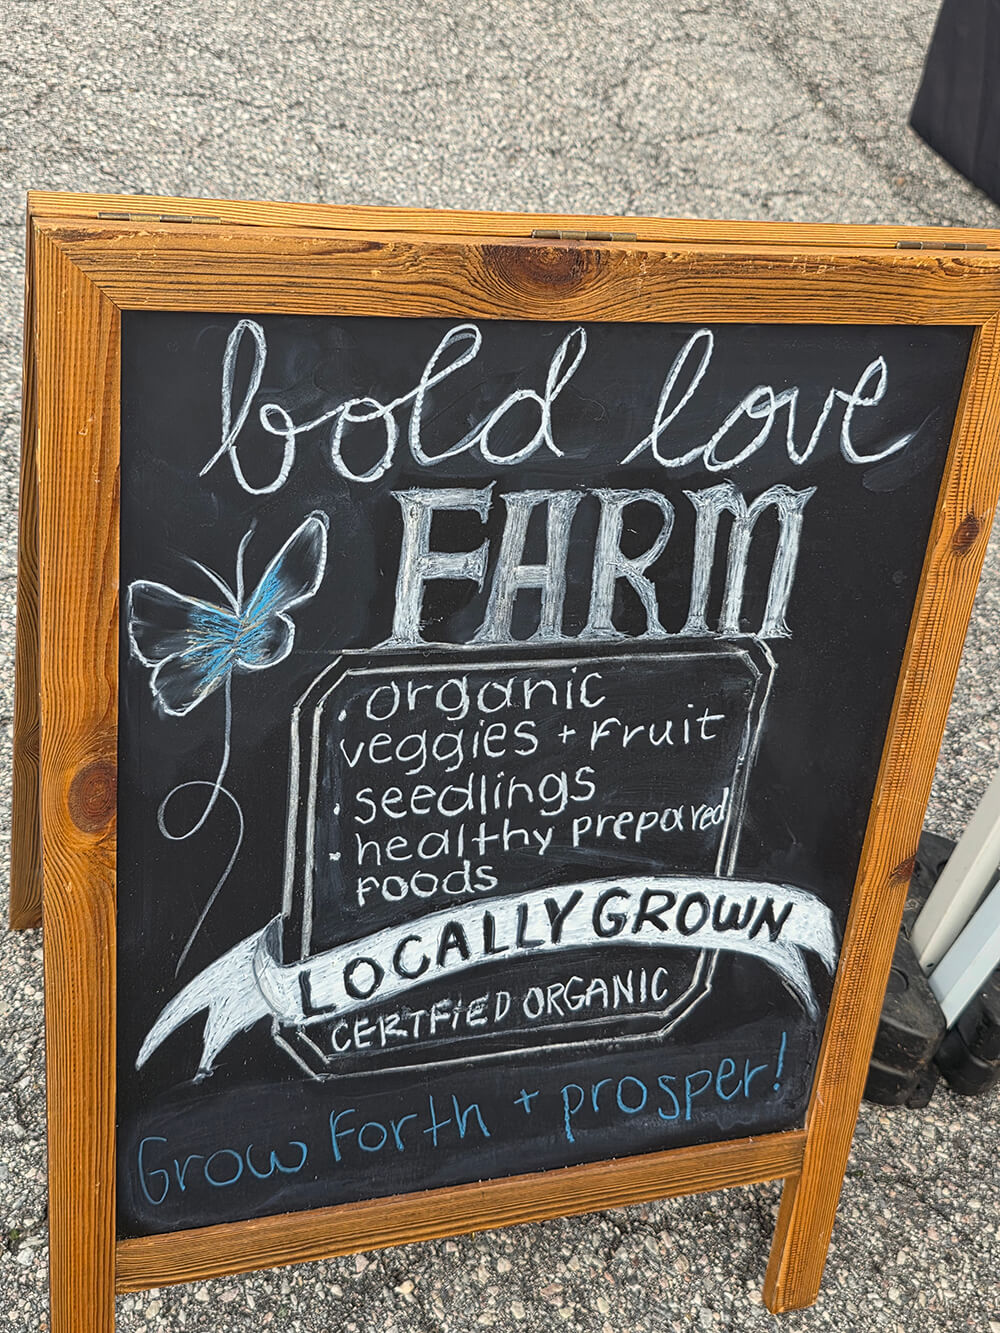 bold love
FARM
· organic
veggies + Fruit
· seedlings
· healthy prepared
Foods
LOCALLY GROWN
CERTFiED ORGANIC
Grow Forth + prosper!